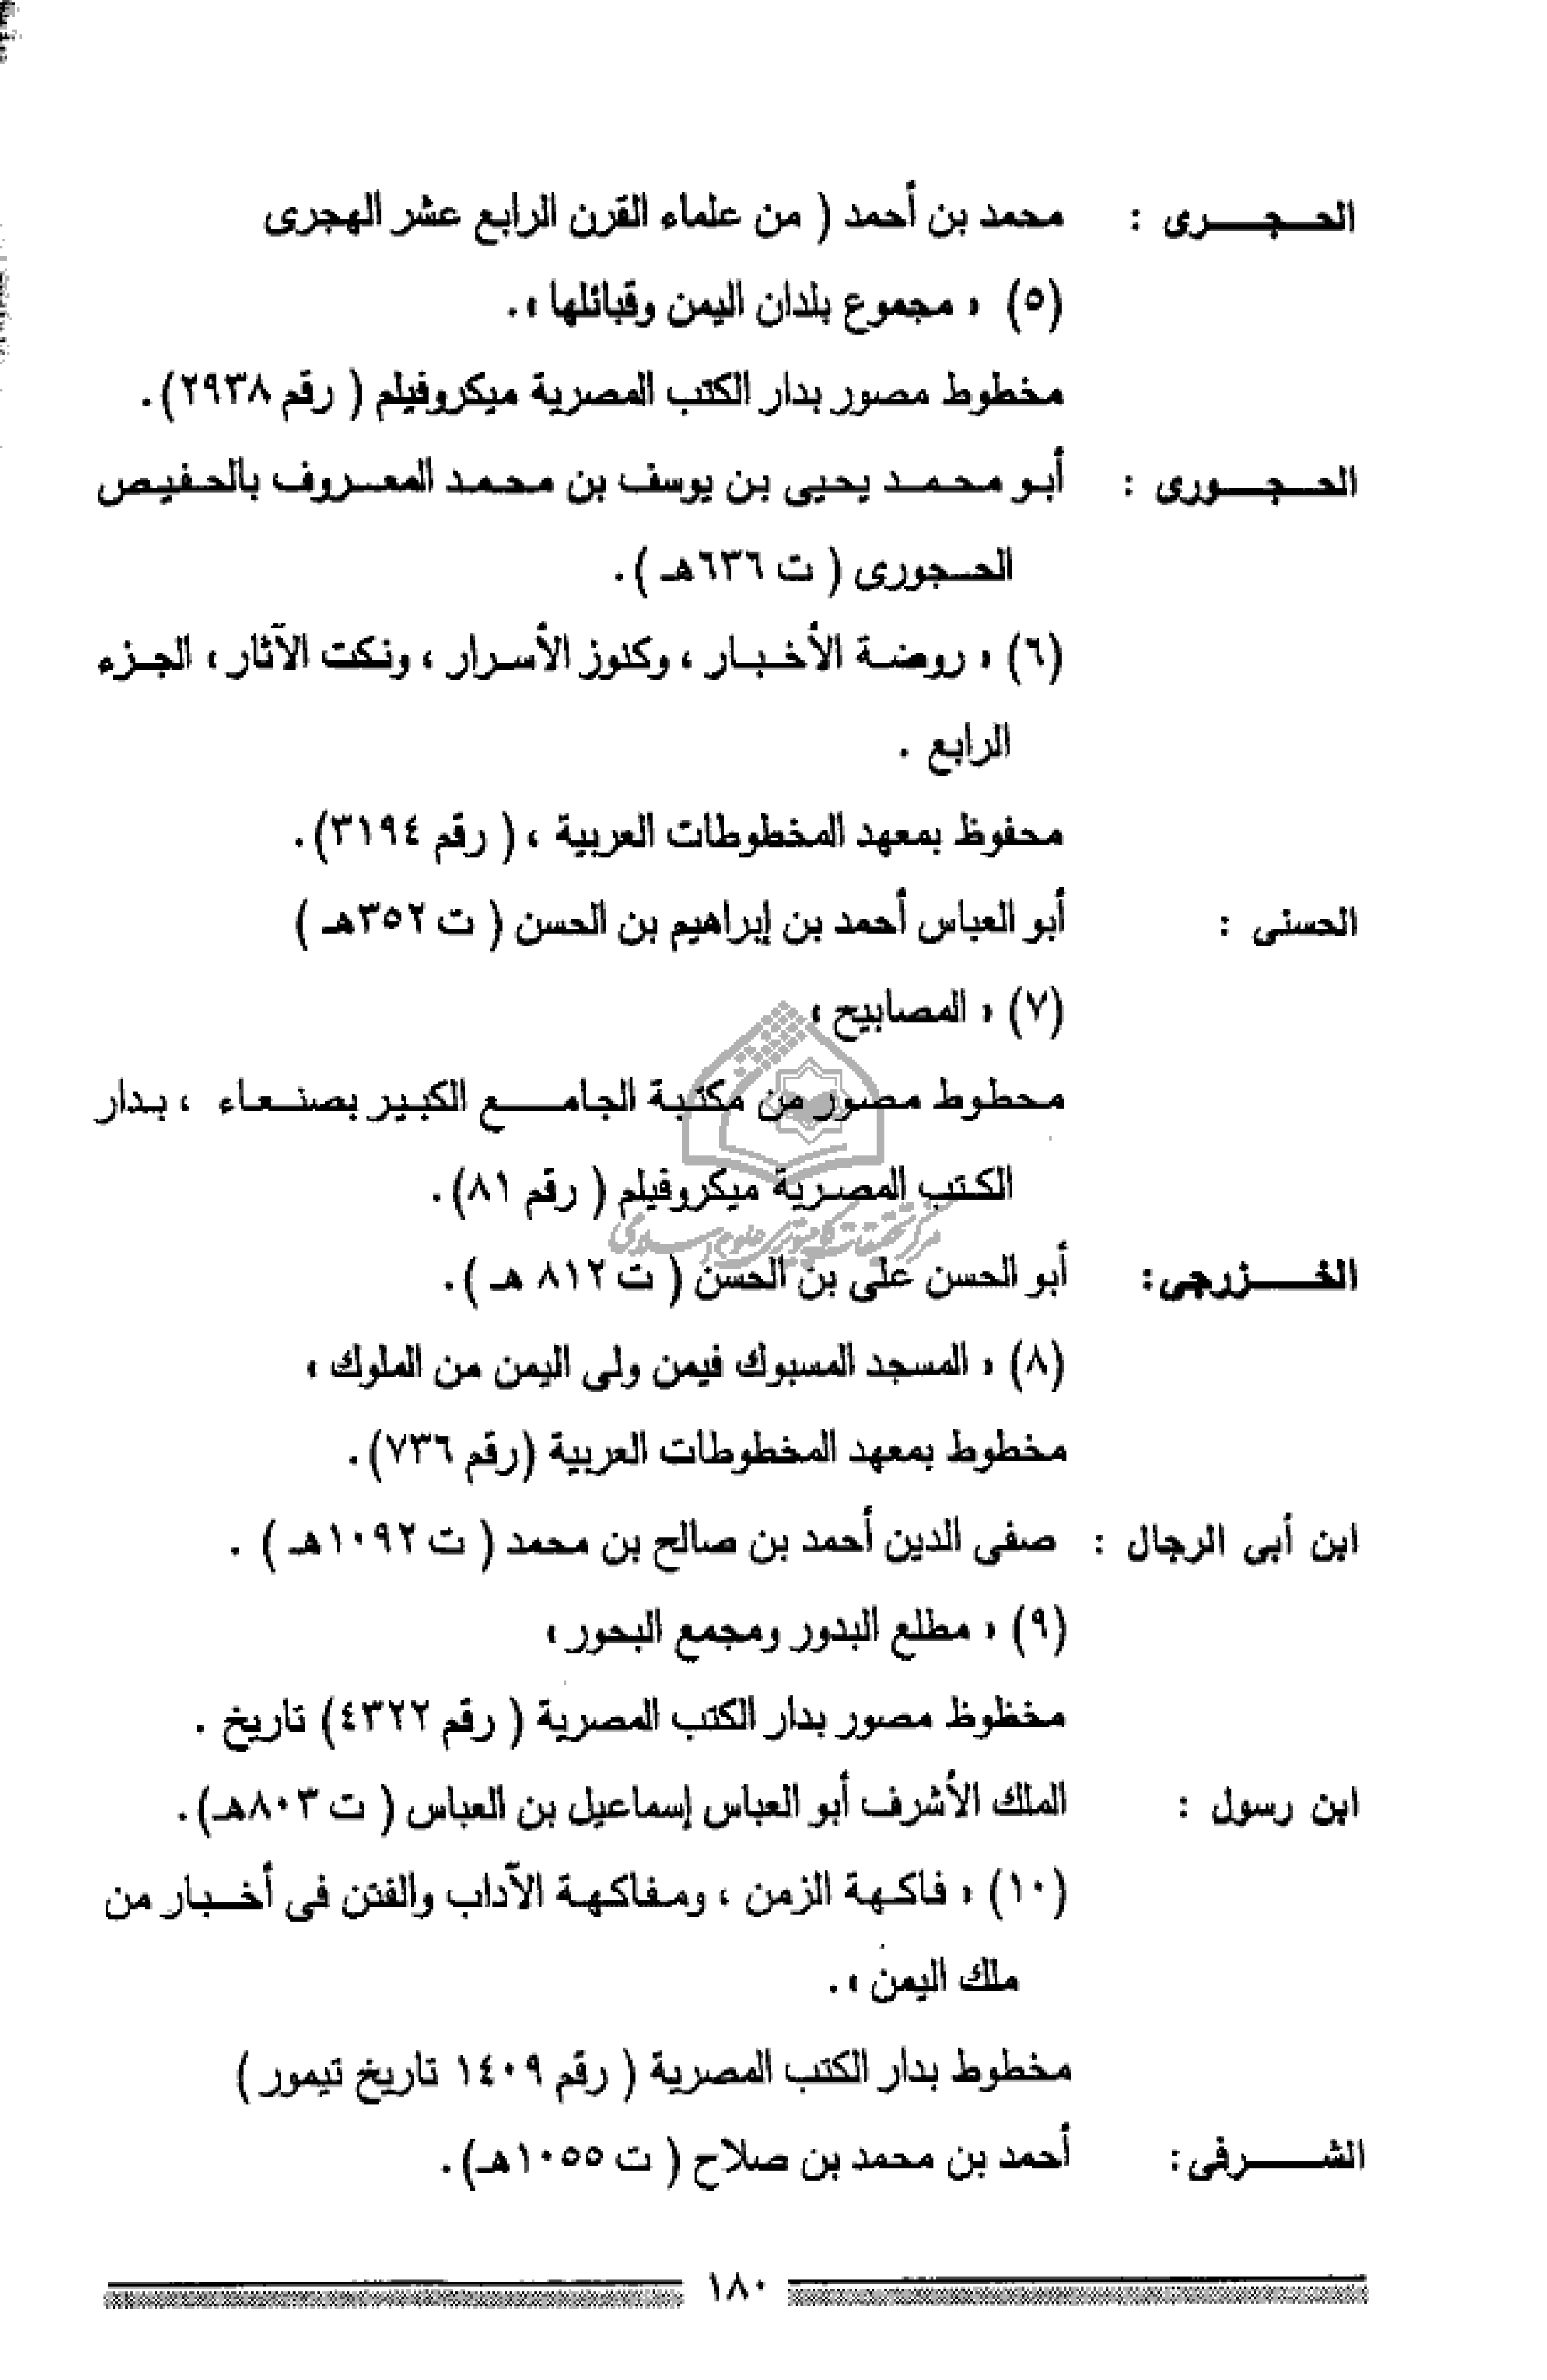 الحجرى : محمد بن أحمد ( من علماء القرن الرابع عشر الهجرى
(٥) « مجموع بلدان اليمن وقبائلها » .
مخطوط مصور بدار الكتب المصرية ميكروفيلم ( رقم ٢٩٣٨) .
الحجورى : أبو محمد يحيى بن يوسف بن محمد المعروف بالحفيص
الحجورى ( ت ٦٣٦هـ ) .
(٦) « روضة الأخبار ، وكنوز الأسرار ، ونكت الآثار » الجزء
الرابع .
محفوظ بمعهد المخطوطات العربية ، ( رقم ٣١٩٤) .
الحسنى : أبو العباس أحمد بن إبراهيم بن الحسن ( ت ٣٥٢هـ )
(٧) « المصابيح »
محطوط مصور من مكتبة الجامع الكبير بصنعاء ، بدار
الكتب المصرية ميكروفيلم ( رقم ٨١) .
الخزرجى : أبو الحسن على بن الحسن ( ت ٨١٢ هـ ) .
(٨) « المسجد المسبوك فيمن ولى اليمن من الملوك »
مخطوط بمعهد المخطوطات العربية (رقم ٧٣٦) .
ابن أبى الرجال : صفى الدين أحمد بن صالح بن محمد ( ت ١٠٩٢هـ ) .
(٩) « مطلع البدور ومجمع البحور »
مخظوظ مصور بدار الكتب المصرية ( رقم ٤٣٢٢) تاريخ .
ابن رسول : الملك الأشرف أبو العباس إسماعيل بن العباس ( ت ٨٠٣هـ) .
(١٠) « فاكهة الزمن ، ومفاكهة الآداب والفتن فى أخبار من
ملك اليمن » .
مخطوط بدار الكتب المصرية ( رقم ١٤٠٩ تاريخ تيمور )
الشرفى : أحمد بن محمد بن صلاح ( ت ١٠٥٥هـ) .
١٨٠
مركز تحقيقات كامپيوترى علوم اسلامى